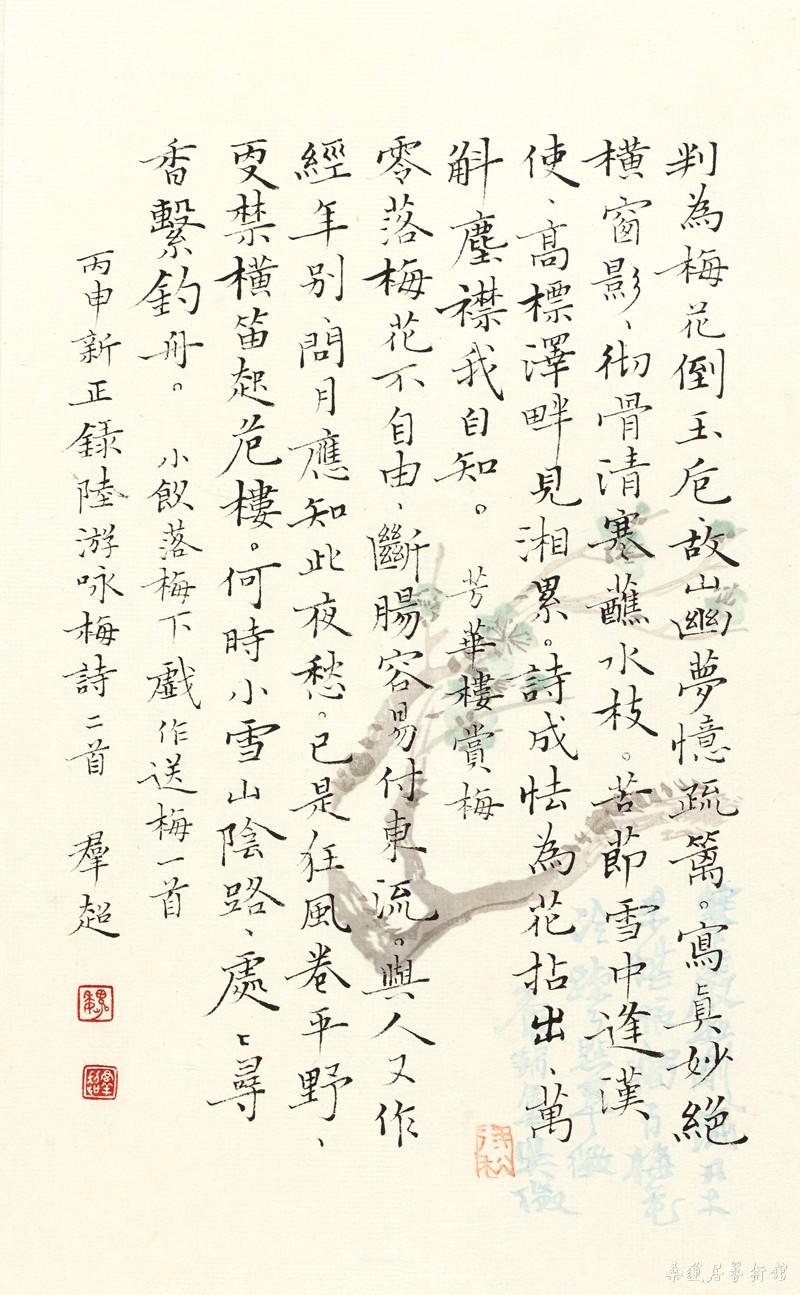 判為梅花倒玉卮、故山幽夢憶疏籬。寫真妙絕
橫窗影、徹骨清寒蘸水枝。苦節雪中逢漢
使、高標澤畔見湘累。詩成怯為花拈出、萬
斛塵襟我自知。 芳華樓賞梅
零落梅花不自由、斷腸容易付東流。與人又作
經年別、問月應知此夜愁。已是狂風卷平野、
更禁橫笛起危樓。何時小雪山陰路、處處尋
香繫釣舟。 小飲落梅下戲作送梅一首
丙申新正錄陸游咏梅詩二首 羣超
魏
羣超
桑蓮居藝術館